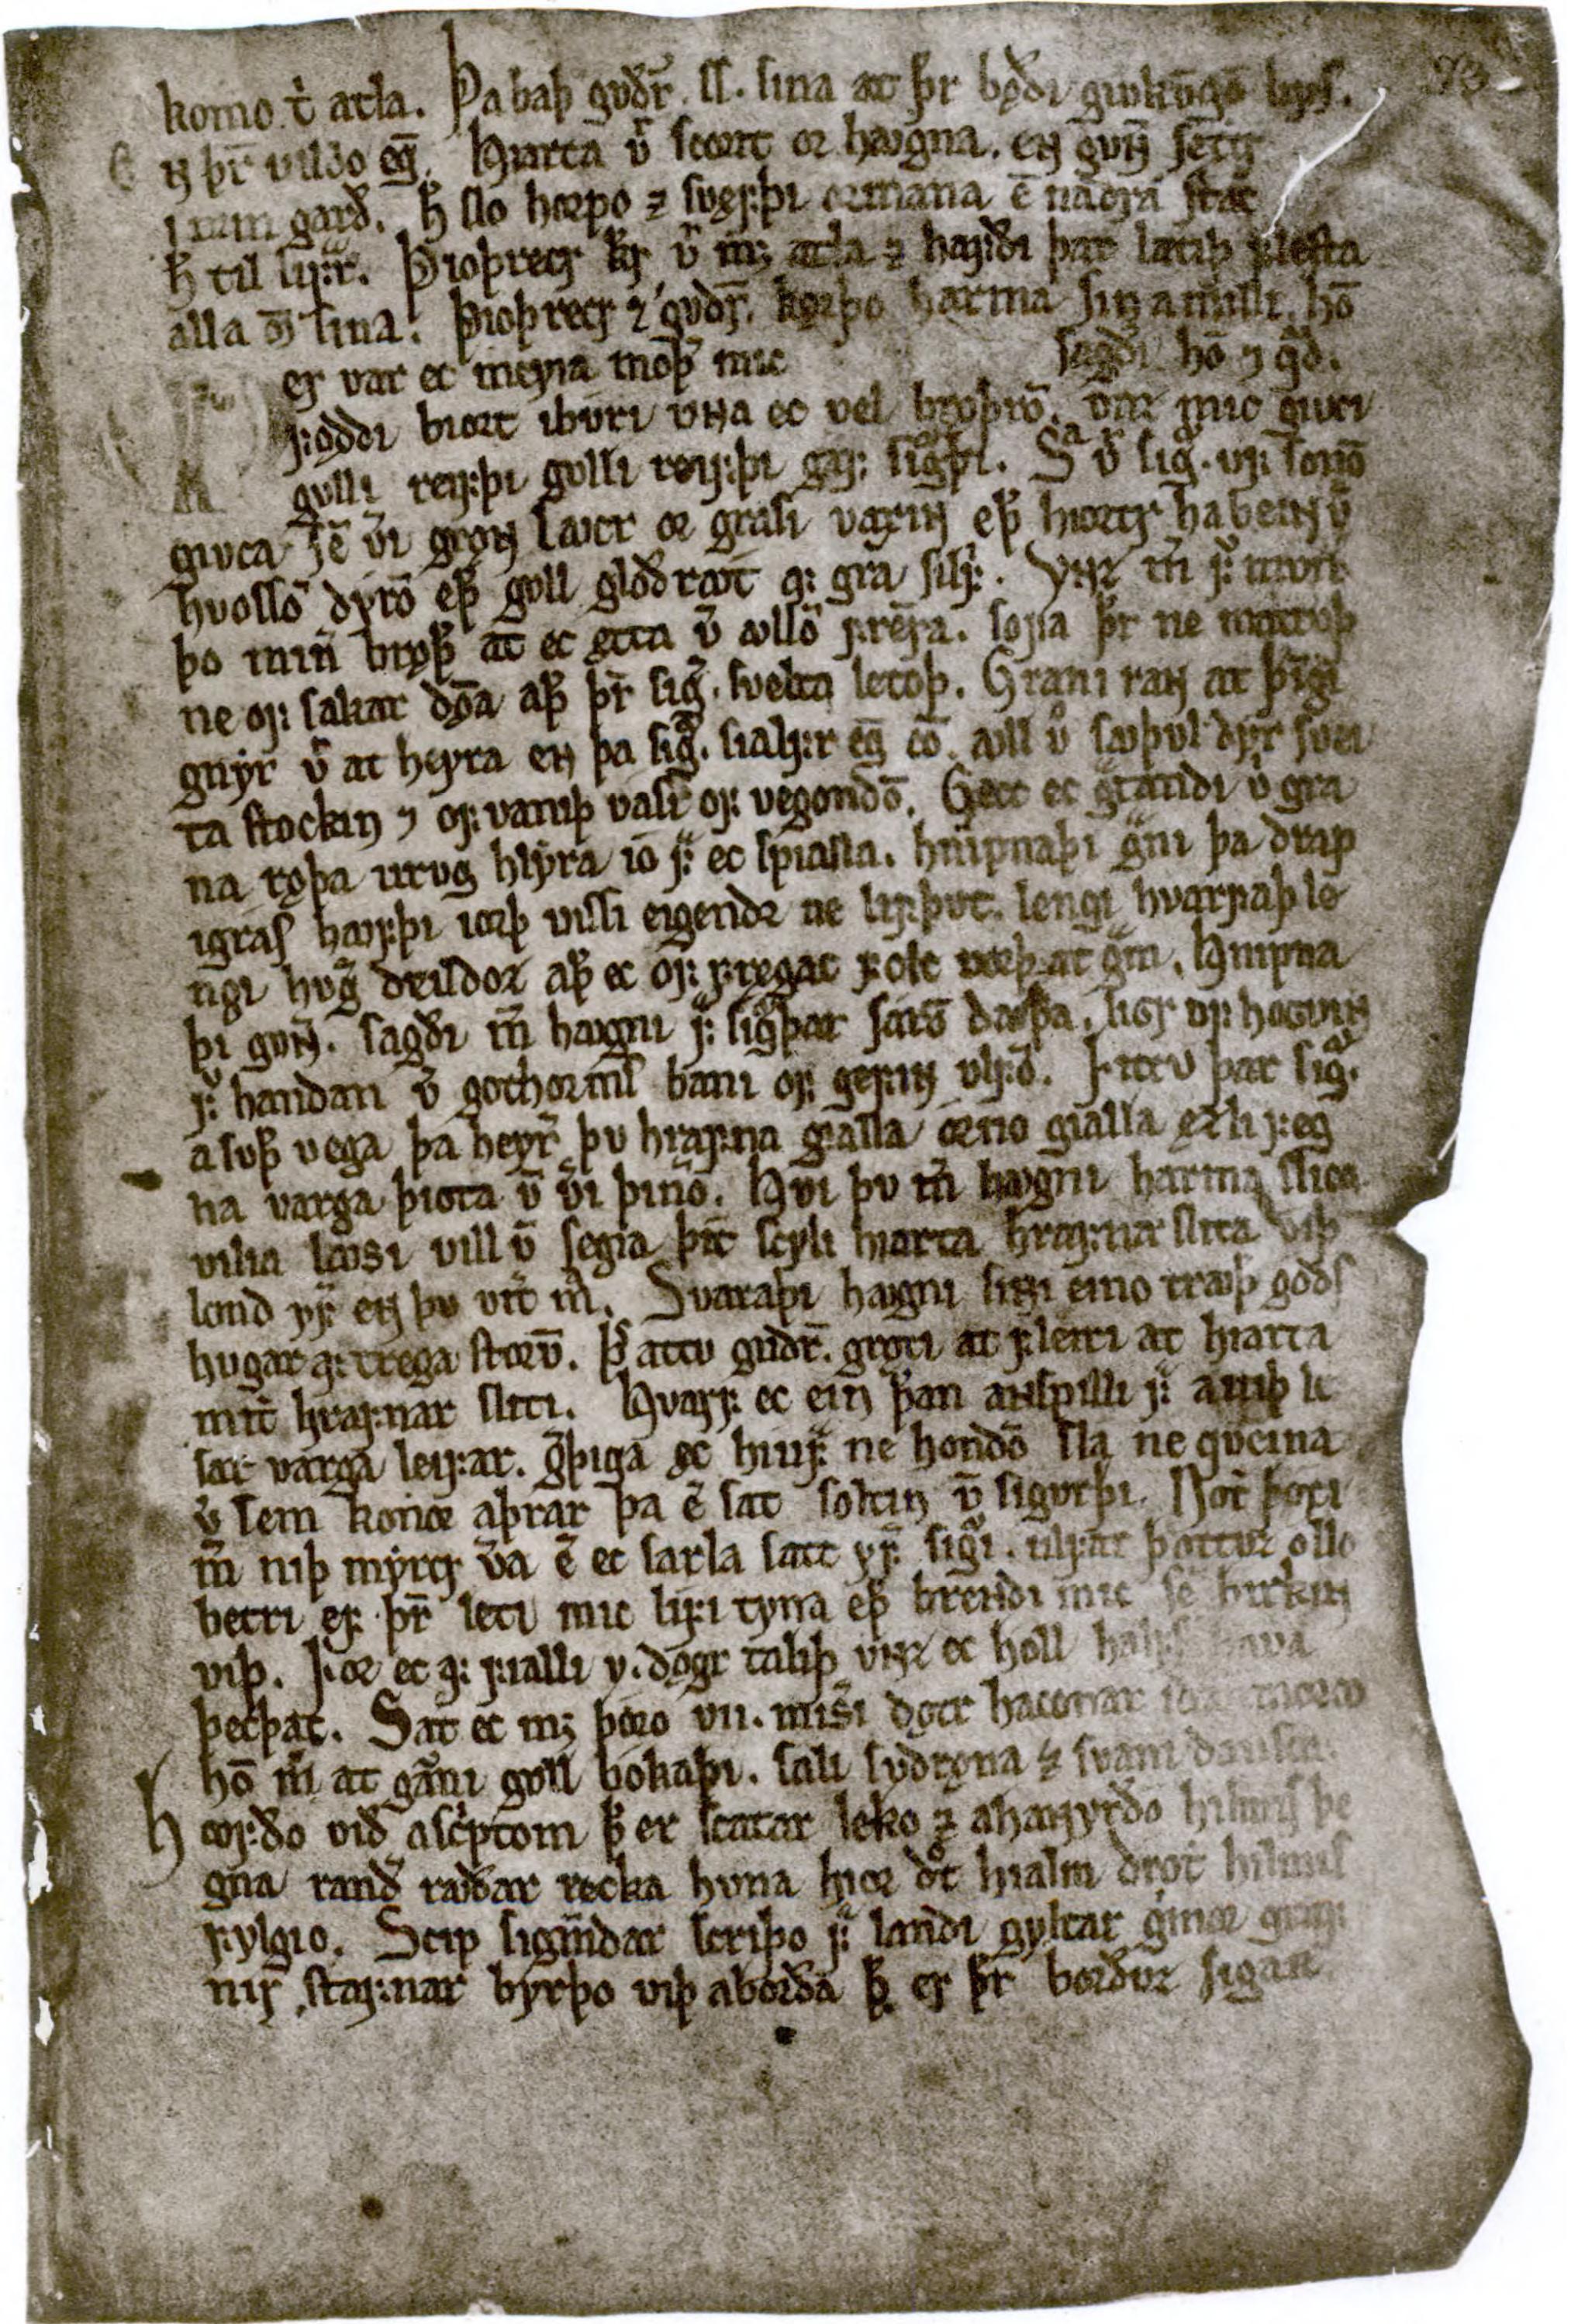 73
komo t͛ atla. Þa baþ gvðr̄. ſſ. ſina at þr̄ bęði givkūgō lifſ.
e ɴ þr̄ vildo eg̅. Hiarta v͛ ſcorit or hꜹgna. en gvɴ̄ ſettr
i orm garð. h̅ ſlo hꜹrpo ⁊ ſvęfþi ormana ē naðra ſtac
h̅ til lifrar. Þioþrecr kr̄ v͛ m; atla ⁊ hafði þar latiþ fleſta
alla m̅ ſina. Þioþrecr ⁊ gvdr̄. kęrþo harma ſin a milli. hō
ſagði hō ⁊ q̅d.
er var ec meyia moþ͛ mic
fǫddi biort ibvri vɴa ec vel brǫþrō. vnz mic givci
gvlli reifþi gvlli reifþi gaf ſigͮþi. Sͣ v͛ ſig̅. uf ſonō
givca ſē v͛i grǫɴ lꜹcr or graſi vaxiɴ eþ͛ hiortr habeiɴ v̄
hvoſſō dyrō eþ͛ gvll glóðrꜹt͛ af gra ſilf͛. Vnz m͛ fͥ mvn
þo min̄ brǫþ͛ at ec ętta v͛ ꜹllō fremra. ſofa þr̄ ne mattoþ
ne of ſakar dǫma aþ͛ þr̄ ſig̅. ſvelta letoþ. Grani raɴ at þīgi
gnyr v͛ at heyra en þa ſig̅. ſialfr eg̅ cō. ꜹll v͛ ſꜹþvl dyr ſvei
ta ſtockin ⁊ of vaniþ vaſi of vegondō. Gecc ec g͛tandi v͛ gra
na rǫþa urvg hlyra io f͛ ec ſpialla. hnipnaþi g̅ni þa drap
igraſ hꜹfþi iorþ viſſi eigendr ne lifþvt. lengi hvarfaþ le
ngi hvg͛ deildoz aþ͛ ec of fregac folc vorþ at g̅m. Hnipna
þi gvɴ̄. ſagði m͛ hꜹgni f͛ ſigͮþar ſarō dꜹþa. ligr of hogviɴ
fͥ handan v͛ gothormſ bani of gefiɴ vlfō. Littv þar ſig̅.
a ſvþ͛ vega þa heyr͛ þv hrafna gialla ǫrno gialla ęzli feg
na varga þiota v̄ v͛i þinō. Hvi þv m͛ hꜹgni harma ſlica
vilia lꜹſi vill v̄ ſegia þit͛ ſcyli hiarta hrafnar ſlita við
lond yf͛ en þv vit͛ m̅. Svaraþi hꜹgni ſiɴi eino trꜹþ͛ goðſ
hvgar af trega ſtorō. Þ͛ attv gudr̄. grǫti at fleiri at hiarta
mit͛ hrafnar ſliti. Hvarf ec ein þ̄an anſpilli f͛ aviþ le
ſar varga leifar. g̅þiga ec hivf͛ ne hondō ſla ne qveina
v̄ ſem konor aþrar þa ē ſat ſoltin v̄ ſigvrþi. Not͛ þotti
m͛ niþ myrcr v͛a ē ec ſarla ſatt yf͛ ſig̅i. ulfar þottvz ollo
betri ef þr̄ leti mic lifi tyna eþ͛ brendi mic ſē birkin
viþ. For ec af fialli v. dǫgr taliþ vnz ec holl halfſ hava
þecþac. Sat ec m; þoro vii. miſ͛i dǫtr haconar
hō m͛ at g̅mni gvll bokaþi. ſali ſvdrǫna ⁊ ſvani danſca
h ꜹfðo við aſc͛ptom þ̄ er ſcatar leko ⁊ ahaɴyrðo hilmiſ þe
gna randir rꜹðar recka hvna hior d͛ot hialm d͛ot hilmiſ
fylgio. Scip ſigm̄dar ſcriþo f͛ landi gyltar g͛mor graf
nir ſtafnar byrþo viþ aborða þ̄ er þr̄ borðvz ſigarr